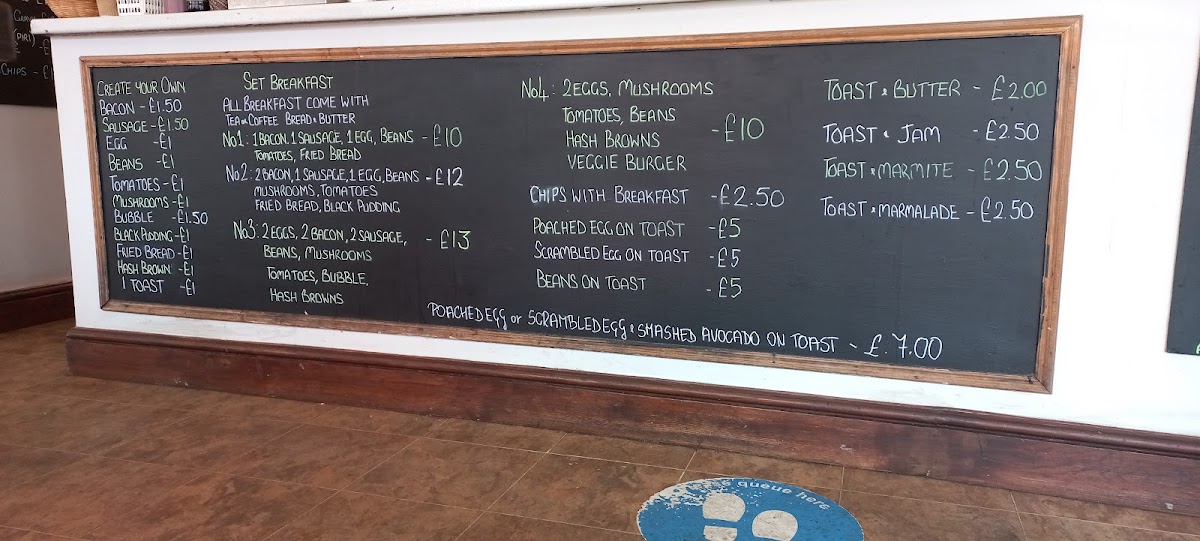 CREATE YOUR OWN
BACON - £1.50
SAUSAGE - £1.50
EGG - £1
BEANS - £1
TOMATOES - £1
MUSHROOMS - £1
BUBBLE - £1.50
BLACK PUDDING - £1
FRIED BREAD - £1
HASH BROWN - £1
1 TOAST - £1
SET BREAKFAST
ALL BREAKFAST COME WITH
TEA OR COFFEE BREAD & BUTTER
No1: 1 BACON, 1 SAUSAGE, 1 EGG, BEANS - £10
TOMATOES, FRIED BREAD
No2: 2 BACON, 1 SAUSAGE, 1 EGG, BEANS - £12
MUSHROOMS, TOMATOES
FRIED BREAD, BLACK PUDDING
No3: 2 EGGS, 2 BACON, 2 SAUSAGE, - £13
BEANS, MUSHROOMS
TOMATOES, BUBBLE,
HASH BROWNS
No4: 2 EGGS, MUSHROOMS
TOMATOES, BEANS
HASH BROWNS - £10
VEGGIE BURGER
CHIPS WITH BREAKFAST - £2.50
POACHED EGG ON TOAST - £5
SCRAMBLED EGG ON TOAST - £5
BEANS ON TOAST - £5
TOAST & BUTTER - £2.00
TOAST & JAM - £2.50
TOAST & MARMITE - £2.50
TOAST & MARMALADE - £2.50
POACHED EGG or SCRAMBLED EGG & SMASHED AVOCADO ON TOAST - £7.00
(PIRI)
CHIPS - £
queue here